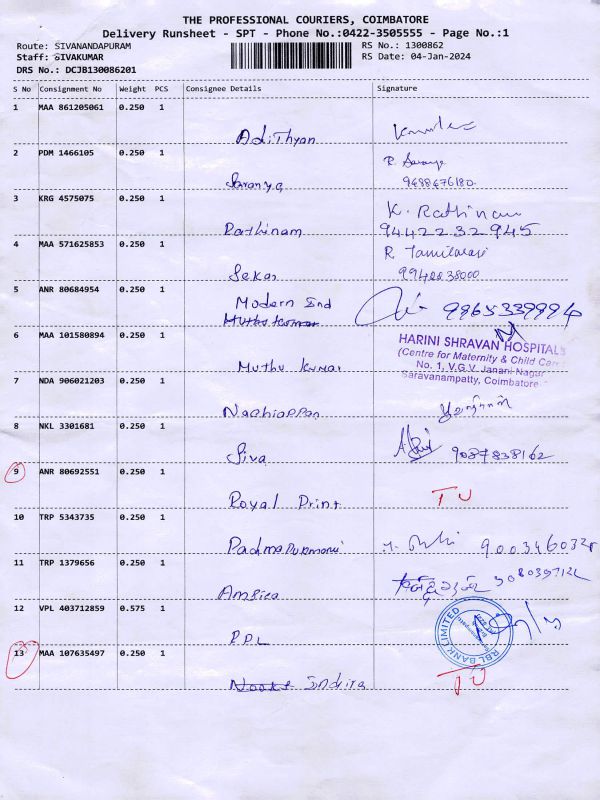 THE PROFESSIONAL COURIERS, COIMBATORE
Delivery Runsheet - SPT - Phone No.:0422-3505555 - Page No.:1
Route: SIVANANDAPURAM
RS No.: 1300862
Staff: SIVAKUMAR
RS Date: 04-Jan-2024
DRS No.: DCJB130086201
S No Consignment No Weight PCS Consignee Details Signature
1 MAA 861205061 0.250 1
Adithyan
2 PDM 1466105 0.250 1
R. Saranya
Saranya 9488676180
3 KRG 4575075 0.250 1
K. Rathinam
Rathinam 9442232945
4 MAA 571625853 0.250 1
R Tamilarasi
Sekar 9942238000
5 ANR 80684954 0.250 1
Modern Ind 9965339994
Muthu Kumar
6 MAA 101580894 0.250 1
HARINI SHRAVAN HOSPITALS
(Centre for Maternity & Child Care)
No. 1, V.G.V. Janani Nagar
Saravanampatty, Coimbatore
Muthu Kumar
7 NDA 906021203 0.250 1
Nachiappan
8 NKL 3301681 0.250 1
Siva 9087838162
9 ANR 80692551 0.250 1
Royal Print TU
10 TRP 5343735 0.250 1
900346032
11 TRP 1379656 0.250 1
Ambica
12 VPL 403712859 0.575 1
RBL BANK LIMITED
13 MAA 107635497 0.250 1
Indira TU